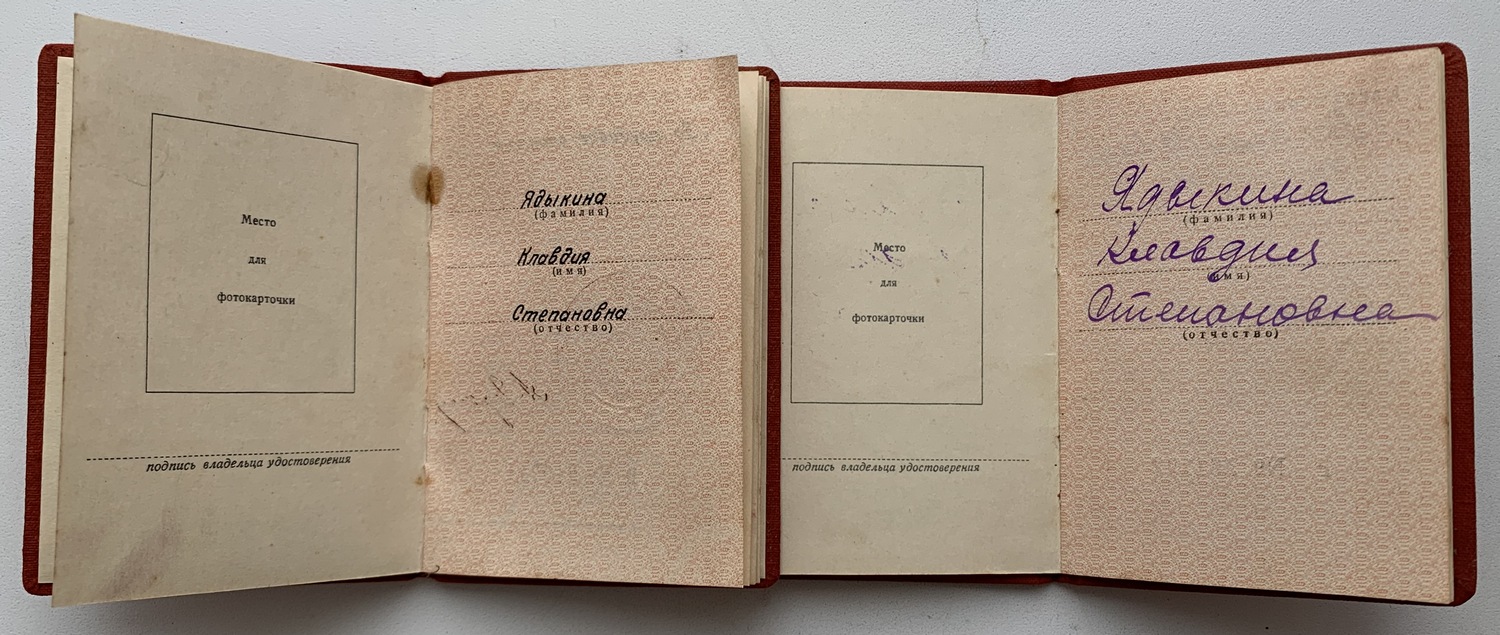 Место
для
фотокарточки
подпись владельца удостоверения
Ядыкина
(фамилия)
Клавдия
(имя)
Степановна
(отчество)
Место
для
фотокарточки
подпись владельца удостоверения
Ядыкина
(фамилия)
Клавдия
(имя)
Степановна
(отчество)